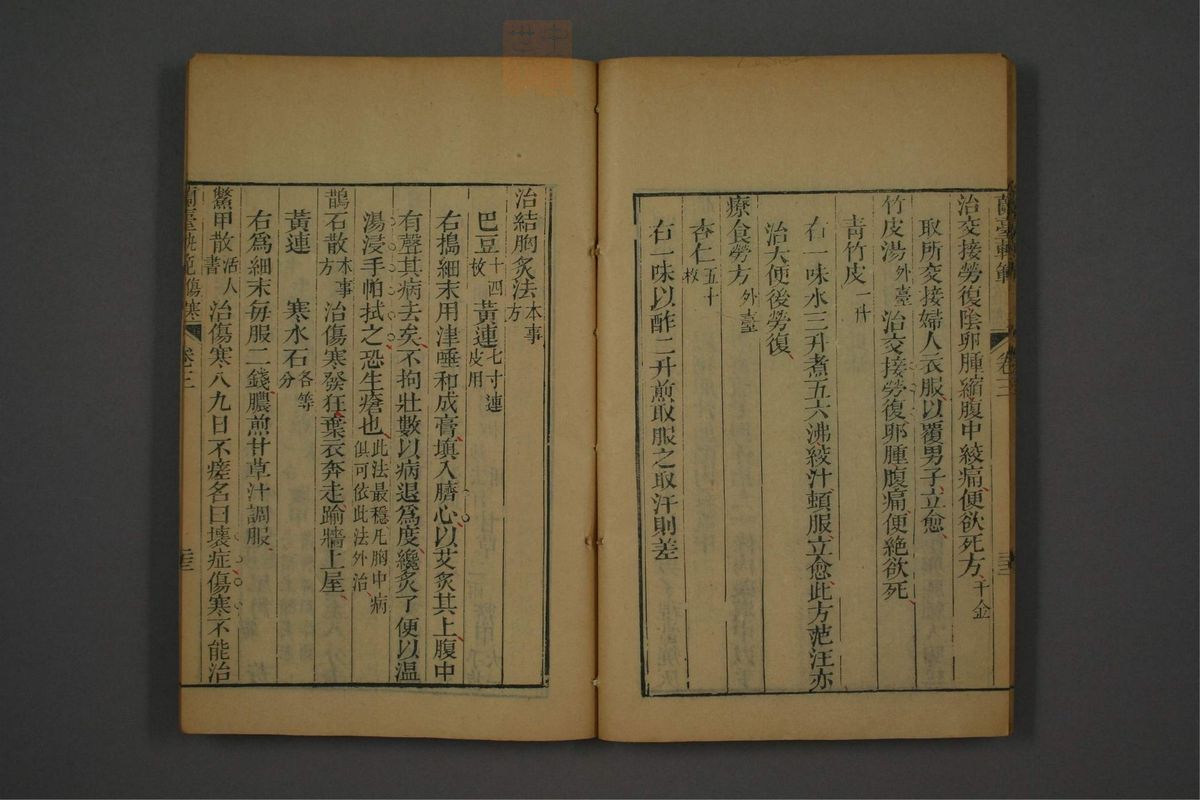 蘭臺軌範 卷三
治交接勞復陰卵腫縮腹中絞痛便欲死方千金
取所交接婦人衣服以覆男子立愈
竹皮湯外臺治交接勞復卵腫腹痛便絕欲死
青竹皮一升
右一味水三升煮五六沸絞汁頓服立愈此方范汪亦
治大便後勞復
療食勞方外臺
杏仁五十枚
右一味以酢二升煎取服之取汗則差
治結胸灸法本事方
巴豆十四枚黃連七寸連皮用
右搗細末用津唾和成膏填入臍心以艾灸其上腹中
有聲其病去矣不拘壯數以病退爲度纔灸了便以溫
湯浸手帕拭之恐生瘡也此法最穩凡胸中病俱可依此法外治
鵲石散本事方治傷寒發狂棄衣奔走踰牆上屋
黃連 寒水石各等分
右爲細末每服二錢膿煎甘草汁調服
鱉甲散活人書治傷寒八九日不瘥名曰壞症傷寒不能治
蘭臺軌範傷寒 卷三